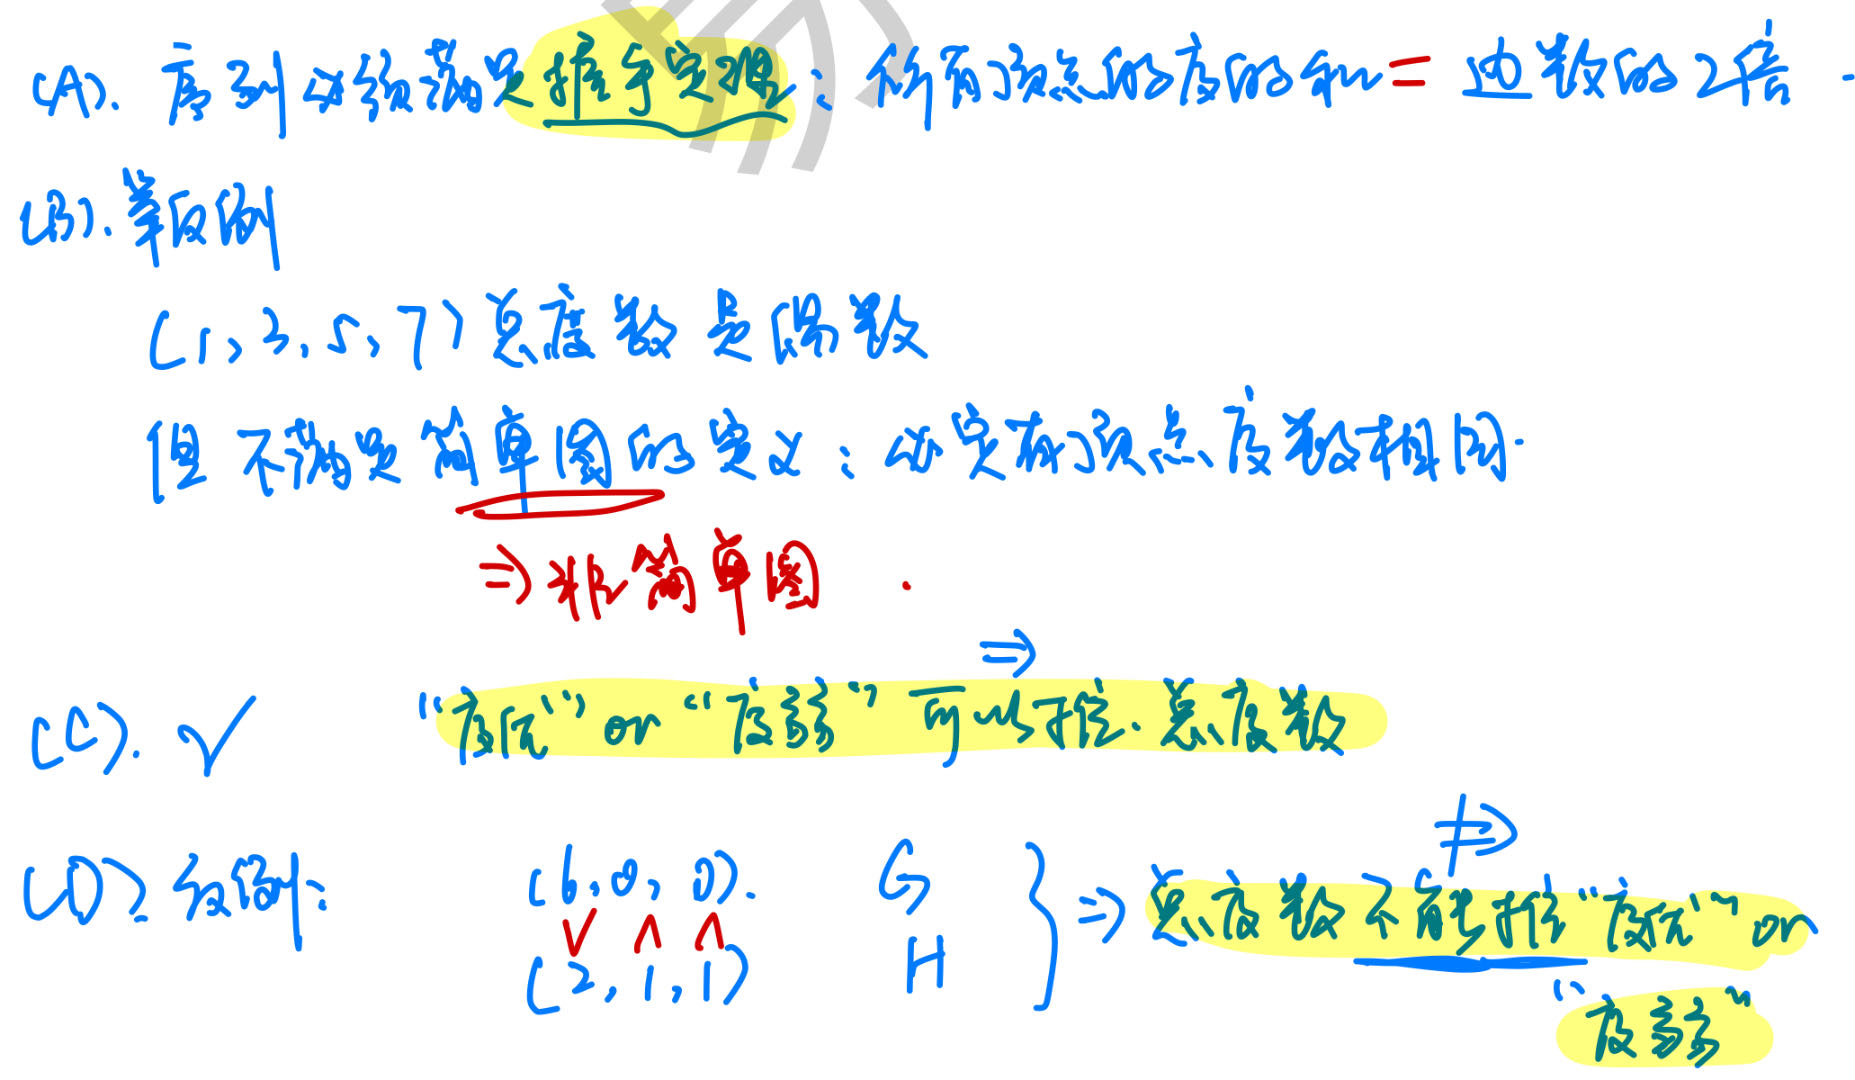 (A). 序列必须满足握手定理：所有顶点的度的和 = 边数的2倍.
(B). 举反例
(1, 3, 5, 7) 总度数是偶数
但不满足简单图的定义：必定有顶点度数相同.
⇒ 非简单图.
⇒
(C). ✓ “度优” or “度弱” 可以推. 总度数
⇏
(D) 反例: (6, 0, 0). G
∨ ∧ ∧ ⇒ 总度数不能推“度优” or
(2, 1, 1) H
“度弱”